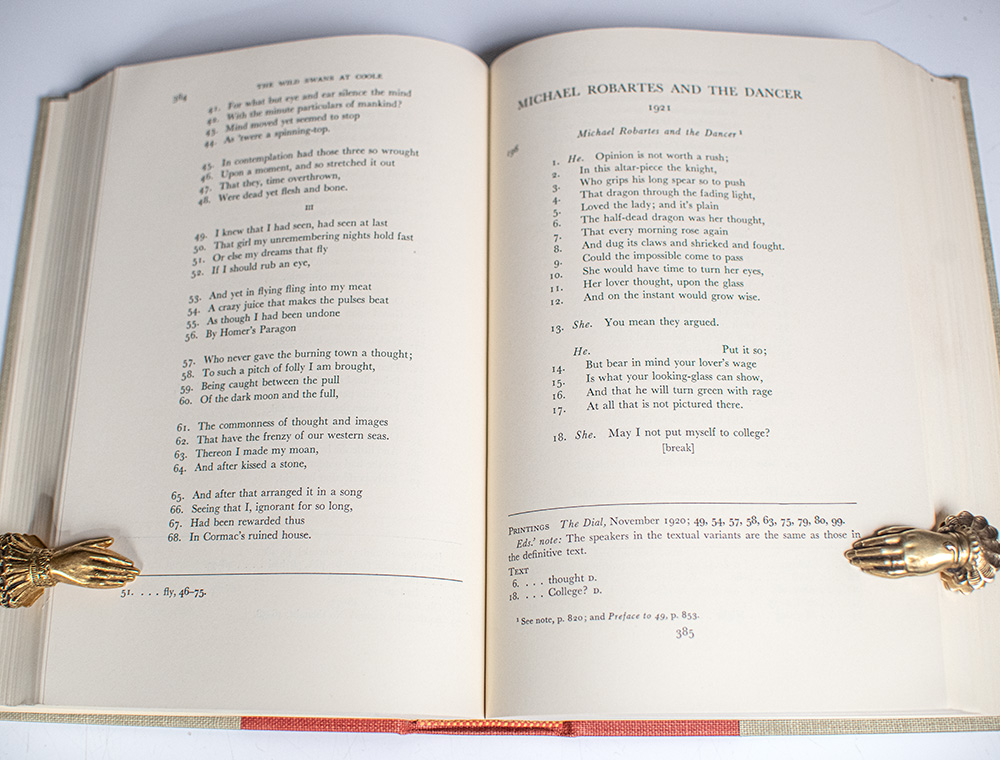 THE WILD SWANS AT COOLE
384
41. For what but eye and ear silence the mind
42. With the minute particulars of mankind?
43. Mind moved yet seemed to stop
44. As 'twere a spinning-top.
45. In contemplation had those three so wrought
46. Upon a moment, and so stretched it out
47. That they, time overthrown,
48. Were dead yet flesh and bone.
III
49. I knew that I had seen, had seen at last
50. That girl my unremembering nights hold fast
51. Or else my dreams that fly
52. If I should rub an eye,
53. And yet in flying fling into my meat
54. A crazy juice that makes the pulses beat
55. As though I had been undone
56. By Homer's Paragon
57. Who never gave the burning town a thought;
58. To such a pitch of folly I am brought,
59. Being caught between the pull
60. Of the dark moon and the full,
61. The commonness of thought and images
62. That have the frenzy of our western seas.
63. Thereon I made my moan,
64. And after kissed a stone,
65. And after that arranged it in a song
66. Seeing that I, ignorant for so long,
67. Had been rewarded thus
68. In Cormac's ruined house.
51. . . . fly, 46-75.
MICHAEL ROBARTES AND THE DANCER
1921
Michael Robartes and the Dancer ¹
196
1. He. Opinion is not worth a rush;
2. In this altar-piece the knight,
3. Who grips his long spear so to push
4. That dragon through the fading light,
5. Loved the lady; and it's plain
6. The half-dead dragon was her thought,
7. That every morning rose again
8. And dug its claws and shrieked and fought.
9. Could the impossible come to pass
10. She would have time to turn her eyes,
11. Her lover thought, upon the glass
12. And on the instant would grow wise.
13. She. You mean they argued.
He. Put it so;
14. But bear in mind your lover's wage
15. Is what your looking-glass can show,
16. And that he will turn green with rage
17. At all that is not pictured there.
18. She. May I not put myself to college?
[break]
PRINTINGS The Dial, November 1920; 49, 54, 57, 58, 63, 75, 79, 80, 99.
Eds.' note: The speakers in the textual variants are the same as those in
the definitive text.
TEXT
6. . . . thought D.
18. . . . College? D.
¹ See note, p. 820; and Preface to 49, p. 853.
385